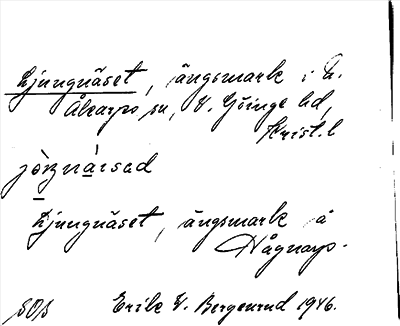 Ljungnäset, ängsmark i N.
Åkarps sn, V. Göinge hd,
Krist. l
Ljungnäset, ängsmark å
Hågnarp.
SOS Erik V. Bergenrud 1946.